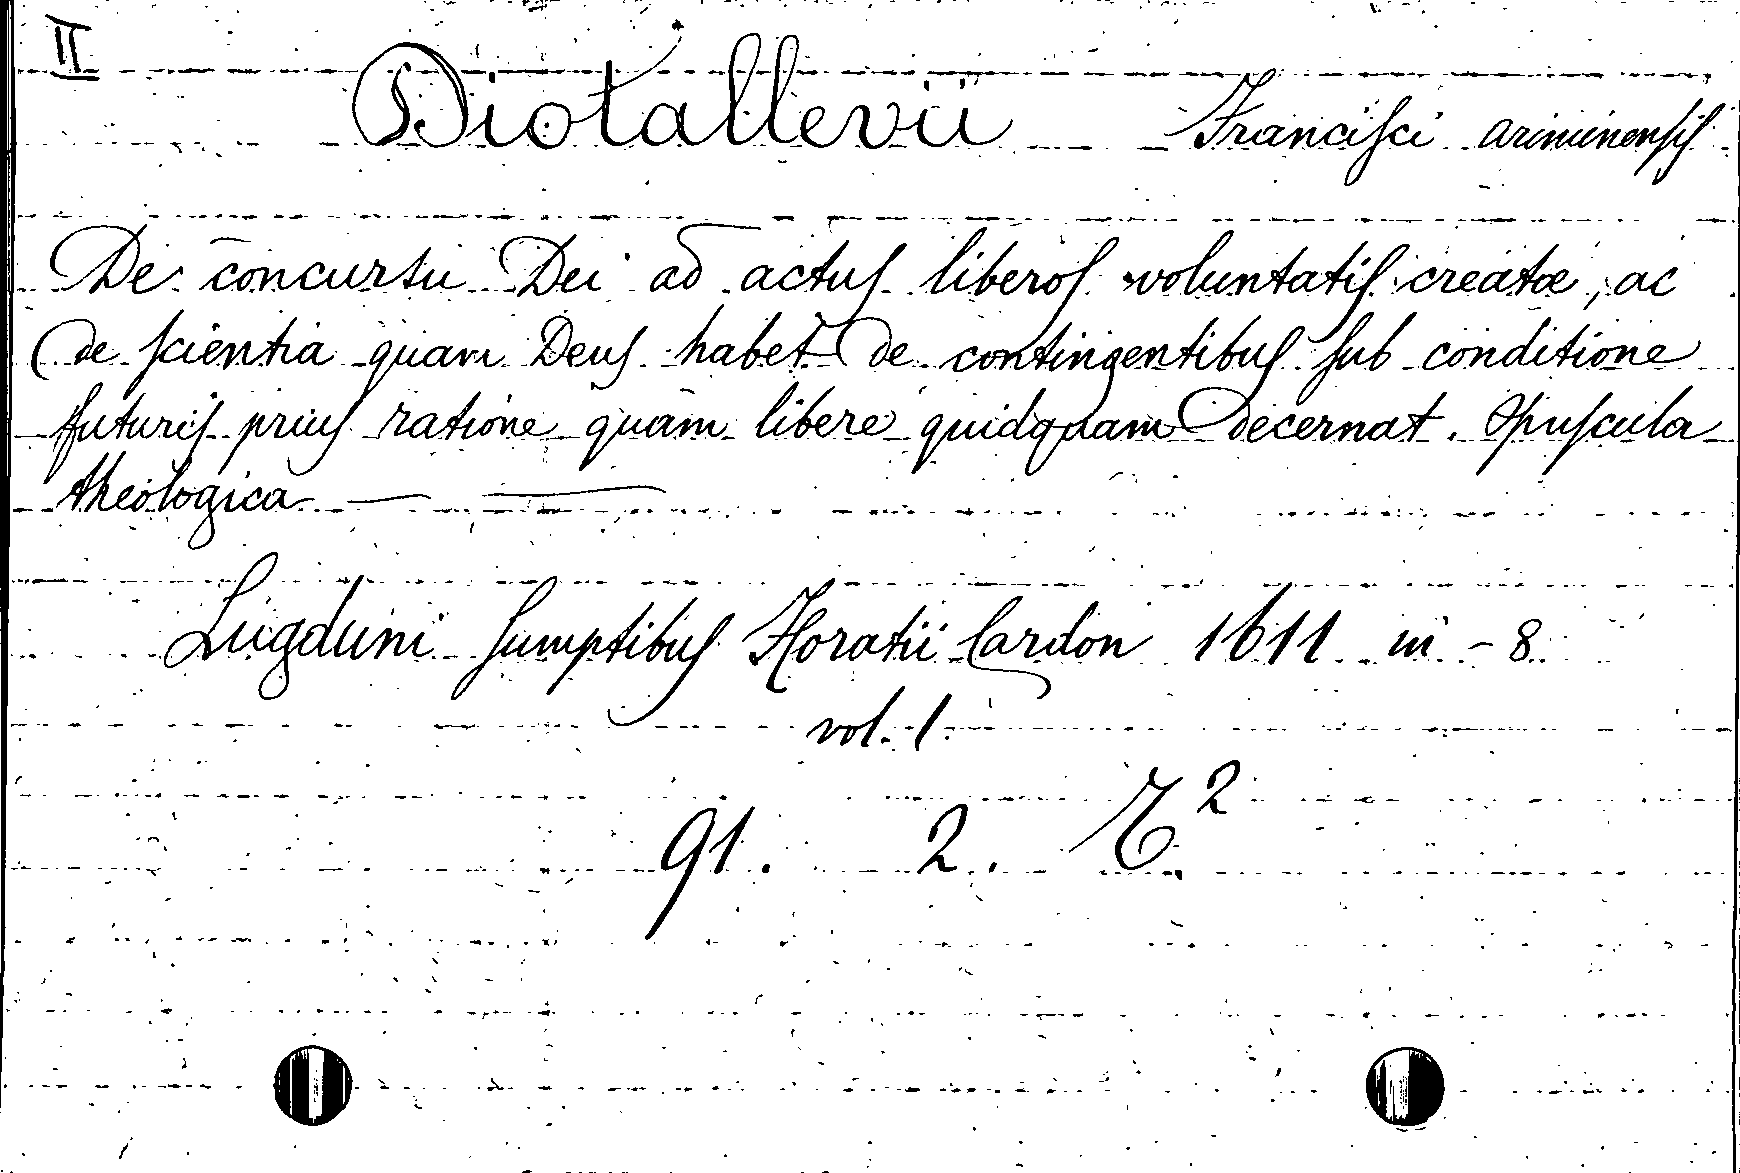 II
Diotallevii Francisci ariminensis
De concursu Dei ad actus liberos voluntatis creatæ, ac
de scientia quam Deus habet de contingentibus sub conditione
futuris prius ratione quam libere quidquam decernat. Opuscula
theologica
Lugduni sumptibus Horatii Cardon 1611 in-8
vol. 1.
91. 2. 2